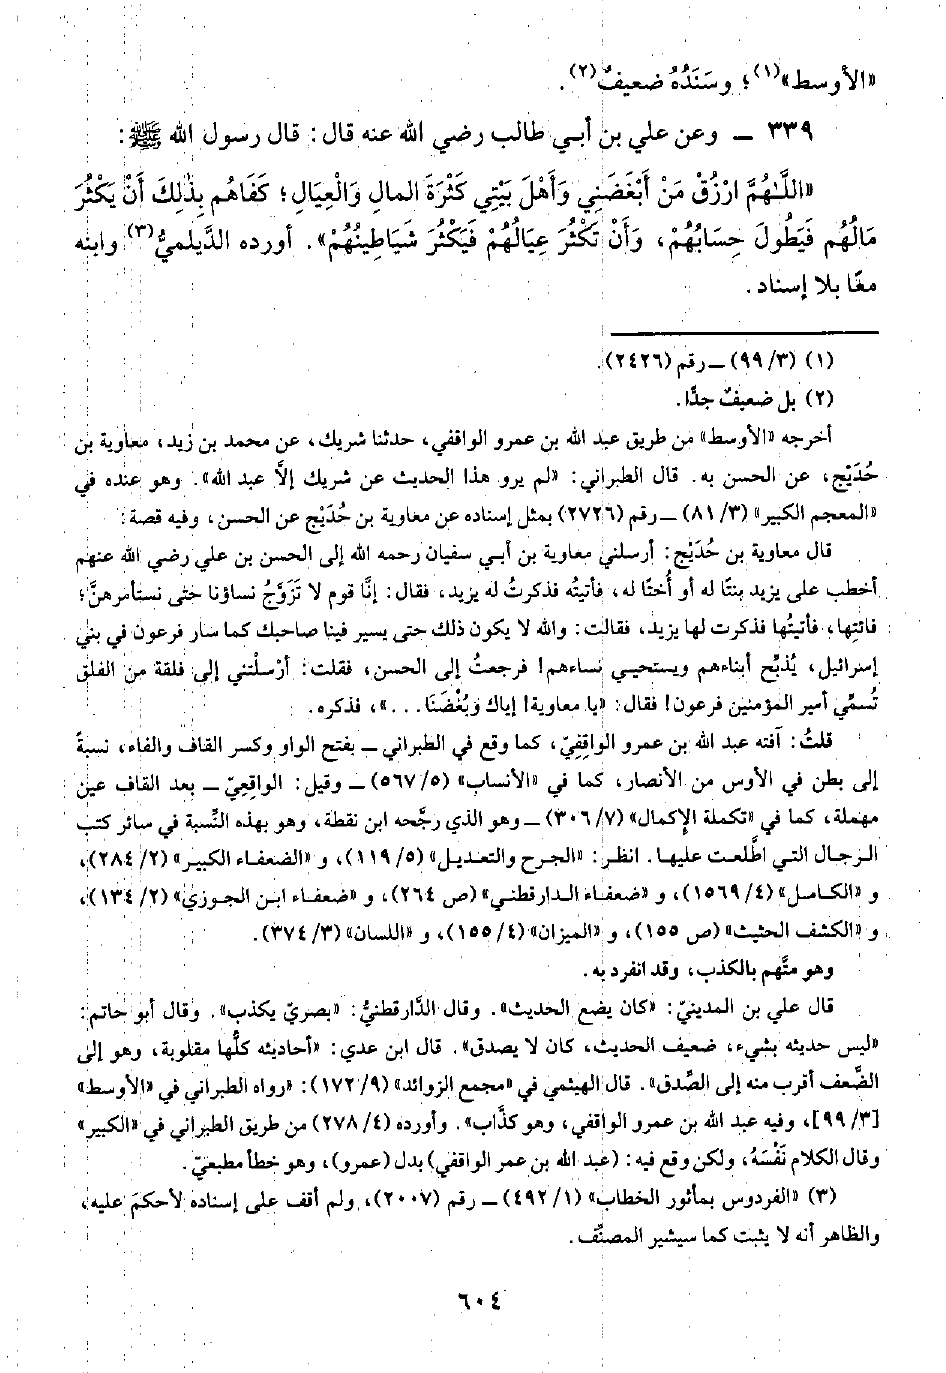 «الأوسط»(١)؛ وسَنَدُهُ ضعيفٌ(٢).
٣٣٩ ـ وعن علي بن أبي طالب رضي الله عنه قال: قال رسول الله ﷺ:
«اللَّهُمَّ ارْزُقْ مَنْ أَبْغَضَنِي وَأَهْلَ بَيْتِي كَثْرَةَ المالِ وَالْعِيَالِ؛ كَفَاهُم بِذَلِكَ أَنْ يَكْثُرَ
مَالُهُم فَيَطُولَ حِسَابُهُمْ، وَأَنْ تَكْثُرَ عِيَالُهُمْ فَيَكْثُرَ شَيَاطِينُهُمْ». أورده الدَّيلميُّ(٣) وابنه
معًا بلا إسناد.
(١) (٩٩/٣) ـ رقم (٢٤٢٦).
(٢) بل ضعيفٌ جدًّا.
أخرجه «الأوسط» من طريق عبد الله بن عمرو الواقفي، حدثنا شريك، عن محمد بن زيد، معاوية بن
حُدَيْج، عن الحسن به. قال الطبراني: «لم يرو هذا الحديث عن شريك إلَّا عبد الله». وهو عنده في
«المعجم الكبير» (٨١/٣) ـ رقم (٢٧٢٦) بمثل إسناده عن معاوية بن حُدَيْج عن الحسن، وفيه قصة:
قال معاوية بن حُدَيْج: أرسلني معاوية بن أبي سفيان رحمه الله إلى الحسن بن علي رضي الله عنهم
أخطب على يزيد بنتًا له أو أُختًا له، فأتيتُه فذكرتُ له يزيد، فقال: إنَّا قوم لا تَزَوَّجُ نساؤنا حتى نستأمرهنَّ؛
فائتِها، فأتيتُها فذكرت لها يزيد، فقالت: والله لا يكون ذلك حتى يسير فينا صاحبك كما سار فرعون في بني
إسرائيل، يُذبِّح أبناءهم ويستحيي نساءهم! فرجعتُ إلى الحسن، فقلت: أرْسلْتني إلى فلقة من الفلق
تُسمِّي أمير المؤمنين فرعون! فقال: «يا معاوية! إياك وَبُغْضَنَا...»، فذكره.
قلتُ: آفته عبد الله بن عمرو الواقِفيّ، كما وقع في الطبراني ـ بفتح الواو وكسر القاف والفاء، نسبةً
إلى بطن في الأوس من الأنصار، كما في «الأنساب» (٥٦٧/٥) ـ وقيل: الواقِعِيّ ـ بعد القاف عين
مهملة، كما في «تكملة الإكمال» (٣٠٦/٧) ـ وهو الذي رجَّحه ابن نقطة، وهو بهذه النِّسبة في سائر كتب
الرجال التي اطَّلعت عليها. انظر: «الجرح والتعديل» (١١٩/٥)، و «الضعفاء الكبير» (٢٨٤/٢)،
و «الكامل» (١٥٦٩/٤)، و «ضعفاء الدارقطني» (ص ٢٦٤)، و «ضعفاء ابن الجوزي» (١٣٤/٢)،
و «الكشف الحثيث» (ص ١٥٥)، و «الميزان» (١٥٥/٤)، و «اللسان» (٣٧٤/٣).
وهو متَّهم بالكذب، وقد انفرد به.
قال علي بن المدينيّ: «كان يضع الحديث». وقال الدَّارقطنيُّ: «بصريّ يكذب». وقال أبو حاتم:
«ليس حديثه بشيء، ضعيف الحديث، كان لا يصدق». قال ابن عدي: «أحاديثه كلُّها مقلوبة، وهو إلى
الضَّعف أقرب منه إلى الصِّدق». قال الهيثمي في «مجمع الزوائد» (١٧٢/٩): «رواه الطبراني في «الأوسط»
[٩٩/٣]، وفيه عبد الله بن عمرو الواقفي، وهو كذَّاب». وأورده (٢٧٨/٤) من طريق الطبراني في «الكبير»
وقال الكلام نَفْسَهُ، ولكن وقع فيه: (عبد الله بن عمر الواقفي) بدل (عمرو)، وهو خطأ مطبعيّ.
(٣) «الفردوس بمأثور الخطاب» (٤٩٢/١) ـ رقم (٢٠٠٧)، ولم أقف على إسناده لأحكمَ عليه،
والظاهر أنه لا يثبت كما سيشير المصنِّف.
٦٠٤